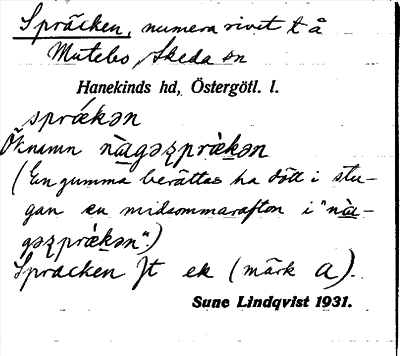 Spräcken, numera rivet t å
Mutebo, Skeda sn
Hanekinds hd, Östergötl. l.
språ̀kən
Öknamn nàgəʐpràkən
(En gumma berättas ha dött i stu-
gan en midsommarafton i "nà-
gəʐpràkən".)
Spräcken ft ek (märk a).
Sune Lindqvist 1931.